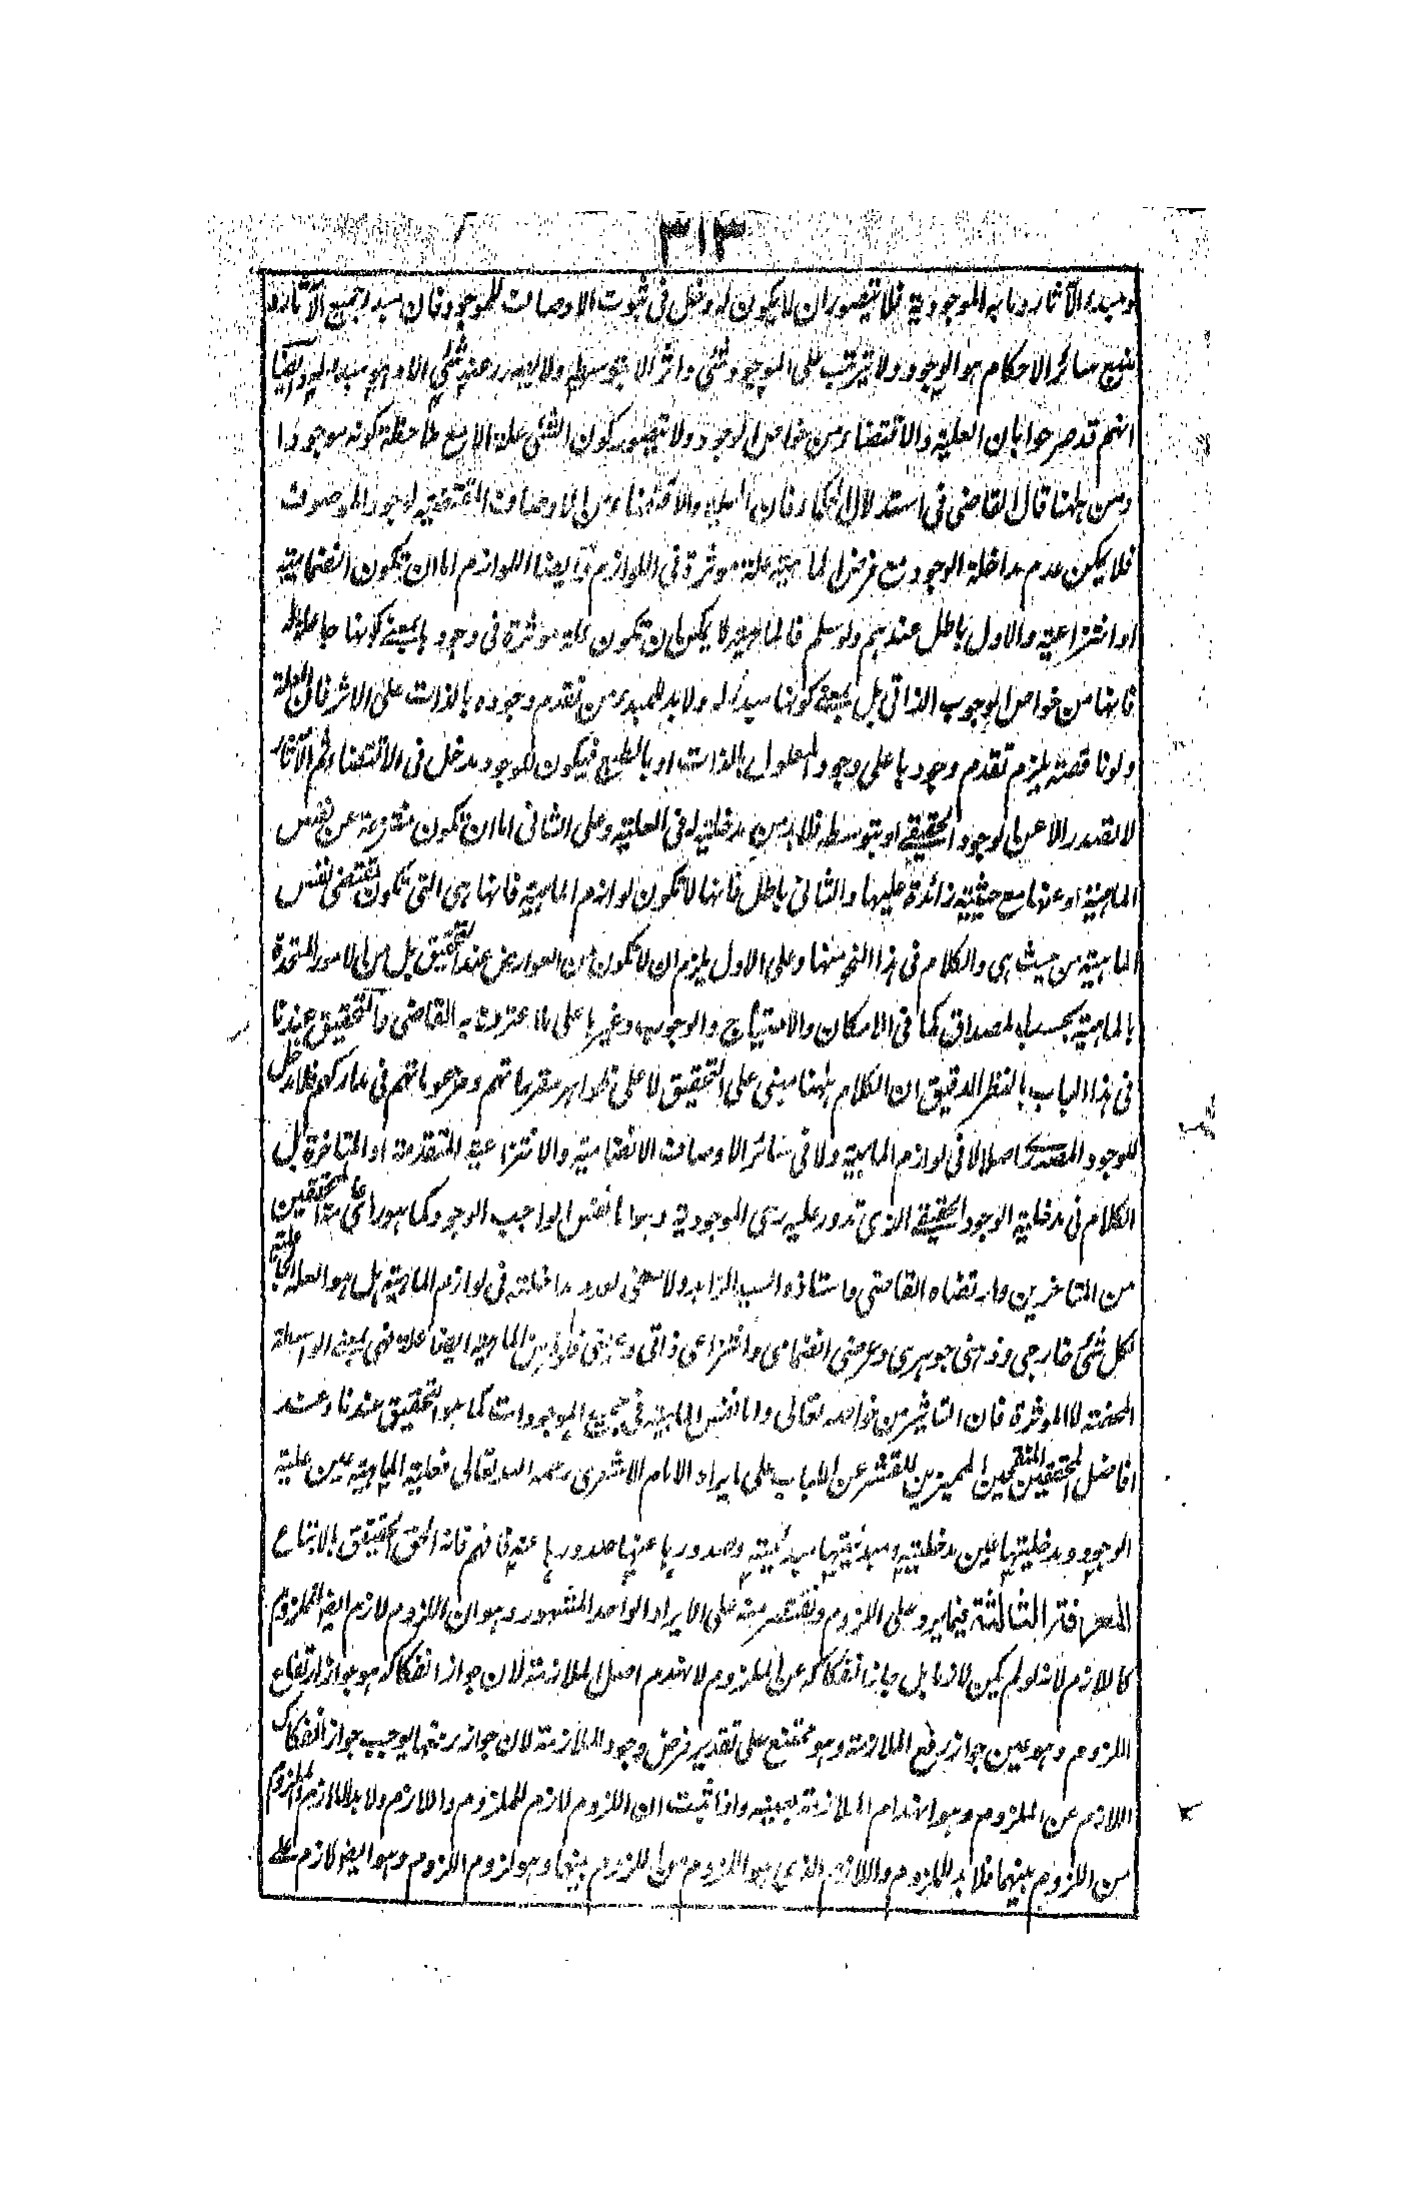 ٣١٣
ومبدء الآثار وما به الموجودية فلا يتصور ان لا يكون له دخل فى ثبوت الاوصاف للموجود فان مبدء جميع الآثار و
منبع سائر الاحكام هو الوجود ولا يترتب على الموجود شئ واثر الا بتوسطه ولا يصدر عنه شئ الا وهو مبدء له وايضا
انهم قد صرحوا بان العلية والاقتضاء من خواص الوجود ولا يتصور كون الشئ علة الا مع ملاحظة كونه موجودا
ومن ههنا قال القاضى فى استدلال الحكماء فان العلية والاقتضاء من الاوصاف المقتضية لوجود الموصوف
فلا يمكن عدم مداخلة الوجود مع فرض الماهية علة موثرة فى اللوازم وايضا اللوازم اما ان تكون انضمامية
او انتزاعية والاول باطل عندهم ولو سلم فالماهية لا يمكن ان تكون علة موثرة فى وجودها بمعنى كونها جاعلة له
فانها من خواص الوجوب الذاتى بل بمعنى كونها مبدأ له ولا بد للمبدء من تقدم وجوده بالذات على الاثر فان العلة
ولو ناقصة يلزم تقدم وجودها على وجود المعلول بالذات او بالطبع فيكون للوجود مدخل فى الاقتضاء ثم الآثار
لا تصدر الا عن الوجود الحقيقى او بتوسطه فلا بد من مدخليته فى العلية وعلى الثانى اما ان تكون منتزعة عن نفس
الماهية او عنها مع حيثية زائدة عليها والثانى باطل فانها لا تكون لوازم الماهية فانها هى التى تكون مقتضى نفس
الماهية من حيث هى والكلام فى هذا النحو منها وعلى الاول يلزم ان لا تكون من العوارض عند التحقيق بل من الامور المتحدة
بالماهية بحسب المصداق كما فى الامكان والاحتياج والوجوب وغيرها على ما اعترف به القاضى والتحقيق عندنا
فى هذا الباب بالنظر الدقيق ان الكلام ههنا مبنى على التحقيق لا على ظواهر مقرراتهم ومزعوماتهم فى مداركهم فلا دخل
للوجود المصدرى اصلا لا فى لوازم الماهية ولا فى سائر الاوصاف الانضمامية والانتزاعية المتقدمة او المتاخرة بل
الكلام فى مدخلية الوجود الحقيقى الذى تدور عليه رحى الموجودية وهو اما نفس الواجب الوجود كما هو رائ عامة المحققين
من المتاخرين وارتضاه القاضى واستاذه السيد الزاهد ولا معنى لعدم مداخلته فى لوازم الماهية بل هو العلة الجاعلية
لكل شئ خارجى وذهنى جوهرى وعرضى انضمامى وانتزاعى ذاتى وعرضى الماهية ايضا علة فهى بمعنى الواسطة
المحضة لا الموثرة فان التاثير من خواصه تعالى واما نفس الماهية فى جميع الموجودات كما هو التحقيق عندنا وعند
افاضل المحققين المتقدمين المميزين للقشر عن اللباب على ما يراه الامام الاشعرى رحمه الله تعالى فعلية الماهية عين علية
الوجود ومدخليتها عين مدخليته ومبدئيتها مبدئيته وصدورها عنها صدورها عنه فافهم فانه الحق الحقيق بالاتباع
المعرفة الثالثة فيما يرد على اللزوم ونقتصر منه على الايراد الواحد المشهور وهو ان اللزوم لازم ايضا للملزوم
كاللازم لانه لو لم يكن لازما بل جاز انفكاكه عن الملزوم لانهدم اصل الملازمة لان جواز انفكاكه هو جواز ارتفاع
اللزوم وهو عين جواز رفع الملازمة وهو ممتنع على تقدير فرض وجود الملازمة لان جواز رفعها يوجب جواز انفكاك
اللازم عن الملزوم وهو انهدام الملازمة بعينه واذا ثبت ان اللزوم لازم للملزوم واللازم ولا بد للازم والملزوم
من اللزوم بينهما فلا بد للملزوم واللازم الذى هو اللزوم من اللزوم بينهما وهو لزوم اللزوم وهو ايضا لازم على